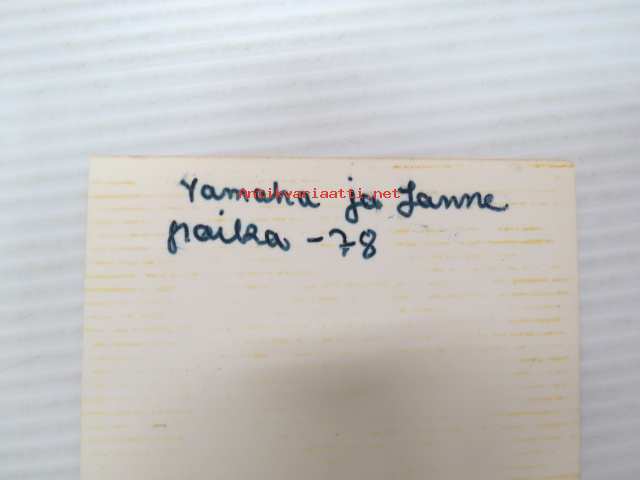 Yamaha ja Janne
paikka -78
Antikvariaatti.net